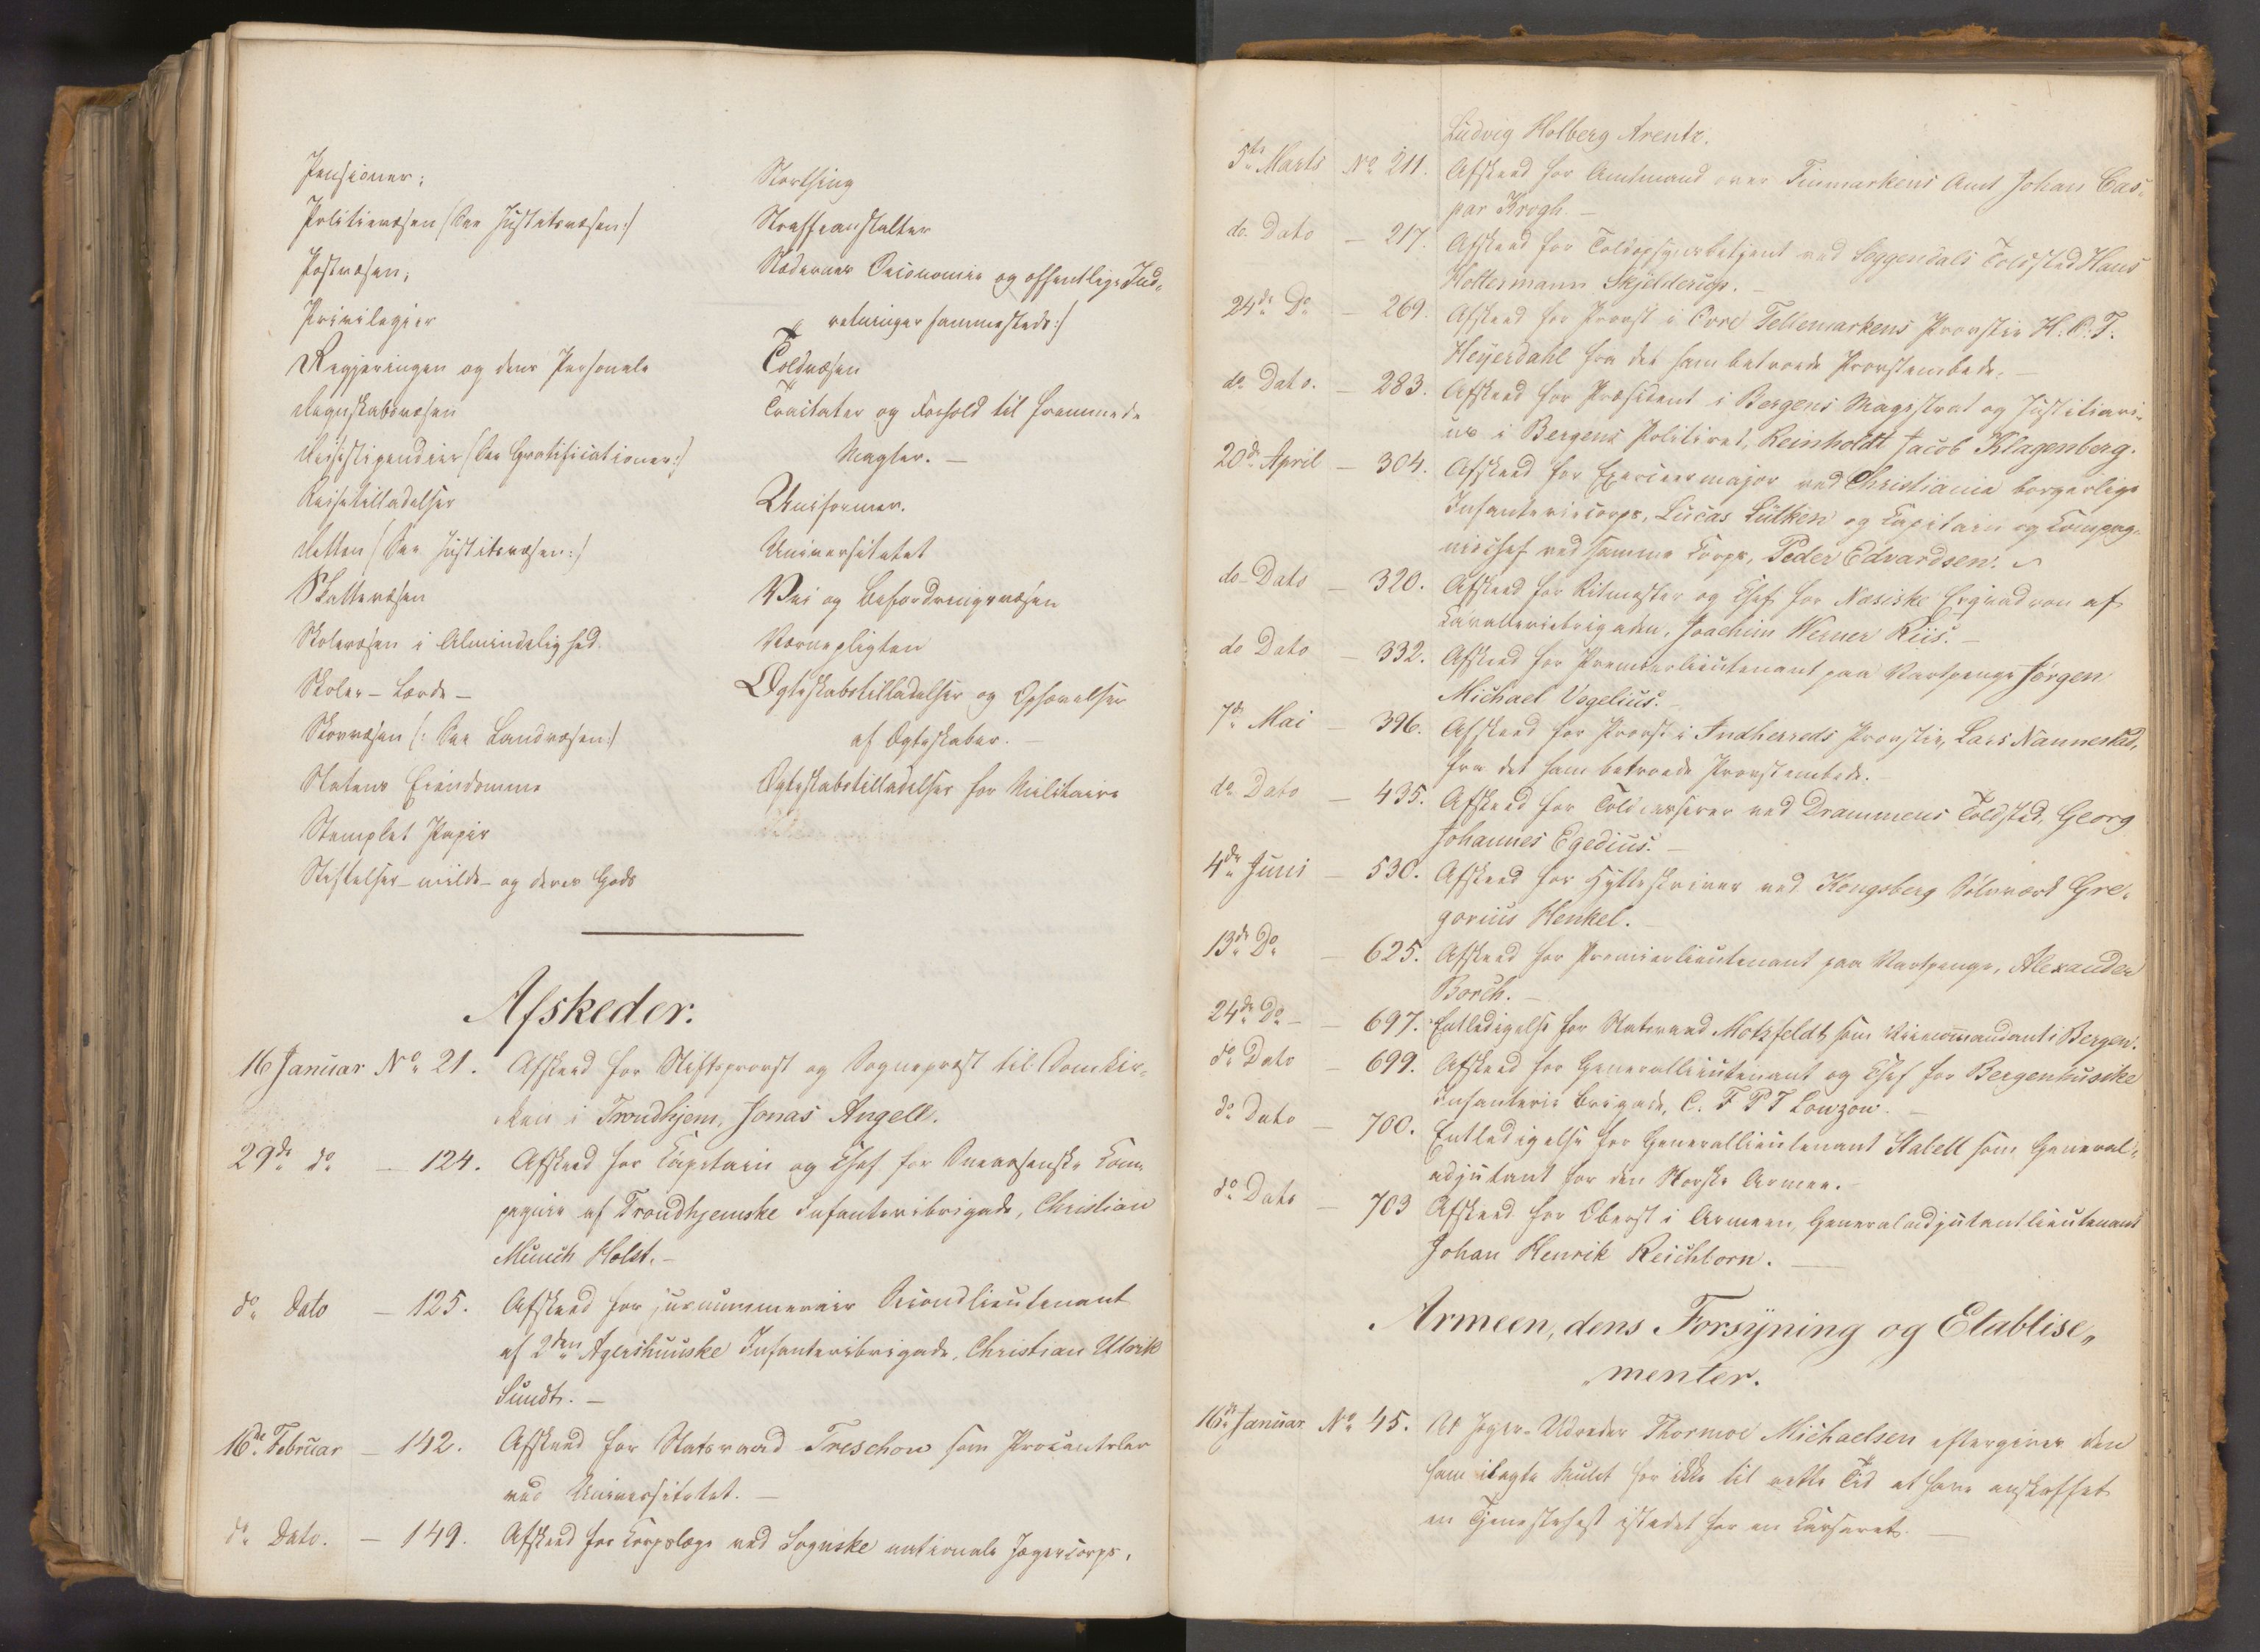 Pensioner;
Politievæsen /See Justitsvæsen:/
Postvæsen;
Privilegier
Regjeringen og dens Personale
Regnskabsvæsen
Reisestipendier /See Gratificationer:/
Reisetilladelser
Retten /See Justitsvæsen:/
Skattevæsen
Skolevæsen i Almindelighed.
Skoler - Lærde -
Skovvæsen /: See Landvæsen:/
Statens Eiendomme
Stemplet Papir
Stiftelser - milde - og deres Gods
Storthing
Straffeanstalter
Stædernes Oeconomie og offentlige Ind-
retninger sammesteds:/
Toldvæsen
Tractater og Forhold til fremmede
Magter. -
Uniformer.
Universitetet
Vei og Befordringsvæsen
Værnepligten
Ægteskabstilladelser og Ophævelser
af Ægteskaber. -
Ægteskabstilladelser for Militaire
Afskeder.
16 Januar No 21. Afskeed for Stiftsprovst og Sognepræst til Domkir-
ken i Trondhjem, Jonas Angell.
29de do - 124. Afskeed for Capitain og Chef for Snaasenske Com-
pagnie af Trondhjemske Infanteribrigade, Christian
Munch Holst. -
do Dato - 125. Afskeed for surnummerair Secondlieutenant
af 2den Agershuuske Infanteribrigade, Christian Ulrik
Sundt. -
16de Februar - 142. Afskeed for Statsraad Treschow som Procantsler
ved Universitetet. -
do Dato. - 149. Afskeed for Corpslæge ved Sognske nationale Jægercorps,
Ludvig Holberg Arentz.
5te Marts No 211. Afskeed for Amtmand over Finmarkens Amt Johan Cas-
par Krogh. -
do Dato - 217. Afskeed for Toldopsynsbetjent ved Soggendals Toldsted Hans
Holtermann Skjelderup. -
24de Do - 269. Afskeed for Provst i Øvre Tellemarkens Provstie H. C. T.
Heyerdahl fra det ham betroede Provstembede. -
do Dato. - 283. Afskeed for Præsident i Bergens Magistrat og Justitiari-
us i Bergens Politiret, Reinholdt Jacob Klagenberg.
20de April - 304. Afskeed for Exerceermajor ved Christiania borgerlige
Infanteriecorps, Lucas Lütken og Capitain og Compag-
niechef ved samme Corps, Peder Edvardsen.
do Dato - 320. Afskeed for Ritmester og Chef for Næsiske Esquadron af
Cavalleriebrigaden, Joachim Werner Riis. -
do Dato - 332. Afskeed for Premierlieutenant paa Vartpenge Jørgen
Michael Vogelius. -
7de Mai - 396. Afskeed for Provst i Indherreds Provstie, Lars Nannestad,
fra det ham betroede Provstembede. -
do Dato - 435. Afskeed for Toldcasserer ved Drammens Toldsted, Georg
Johannes Egedius. -
4de Juni - 530. Afskeed for Hytteskriver ved Kongsberg Sølvværk Gre-
gorius Henkel. -
13de Do - 625. Afskeed for Premierlieutenant paa Vartpenge, Alexander
Borch. -
24de Do - - 697. Entledigelse for Statsraad Motzfeldt som Vicecomandant i Bergen.
do Dato - 699. Afskeed for Generallieutenant og Chef for Bergenhusiske
Infanterie Brigade, C. F P T Lowzow. -
do Dato - 700. Entledigelse for Generallieutenant Staffeldt som General-
adjutant for den Norske Armee. -
do Dato - 703 Afskeed for Oberst i Armeen, Generaladjutantlieutenant
Johan Henrik Reichborn. -
Armeen, dens Forsyning og Etablise-
menter.
16de Januar No 45. At Jæger-Udreder Thormod Michaelsen eftergives den
ham ilagte Mulct for ikke til rette Tid at have anskaffet
en Tjenestehest istedet for en casseret. -